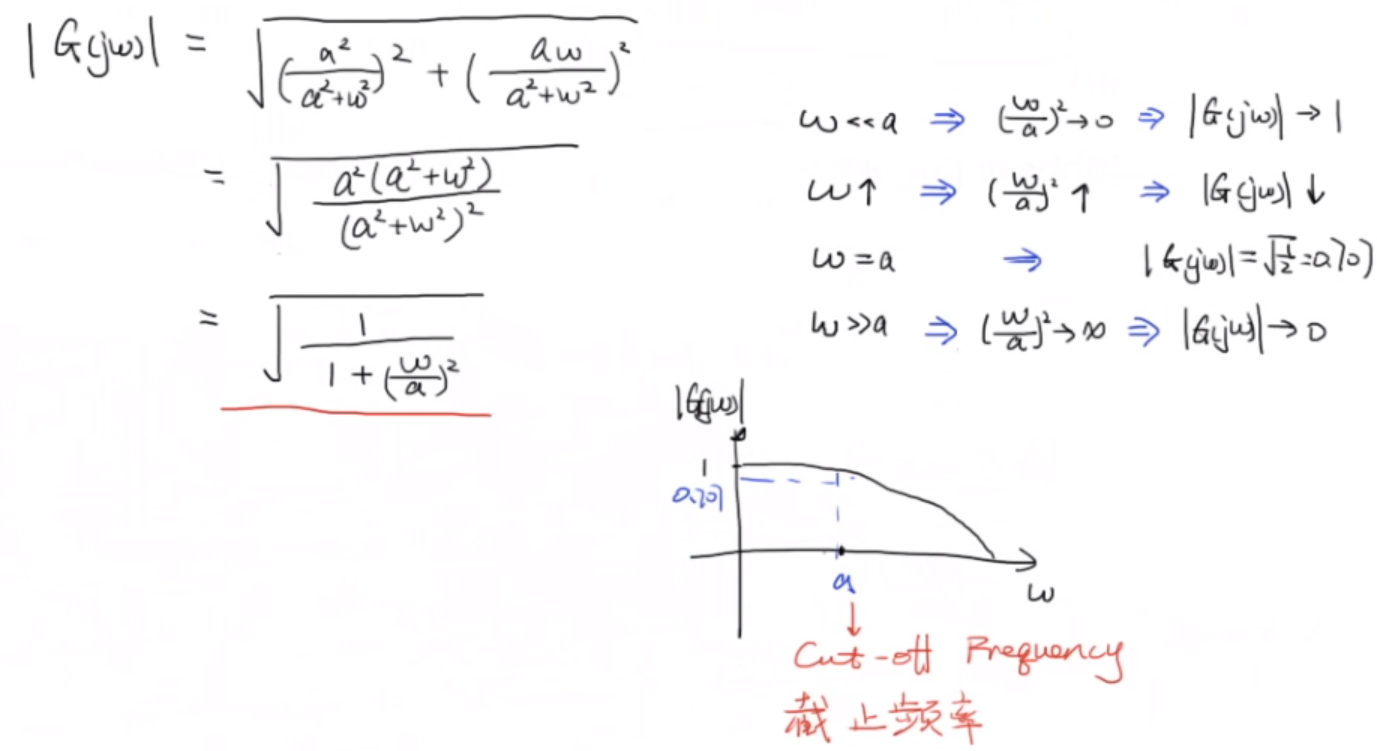 |G(jω)| = √((a²/(a²+ω²))² + (aω/(a²+ω²))²)
= √(a²(a²+ω²)/(a²+ω²)²)
= √(1/(1+(ω/a)²))
ω<<a ⇒ (ω/a)²→0 ⇒ |G(jω)|→1
ω↑ ⇒ (ω/a)²↑ ⇒ |G(jω)|↓
ω=a ⇒ |G(jω)|=√(1/2)=0.707
ω>>a ⇒ (ω/a)²→∞ ⇒ |G(jω)|→0
|G(jω)|
1
0.707
a
ω
Cut-off Frequency
截止频率